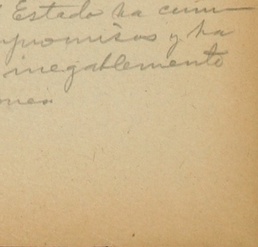 Estado ha cum-
promisos y ha
inegablemente
ones.